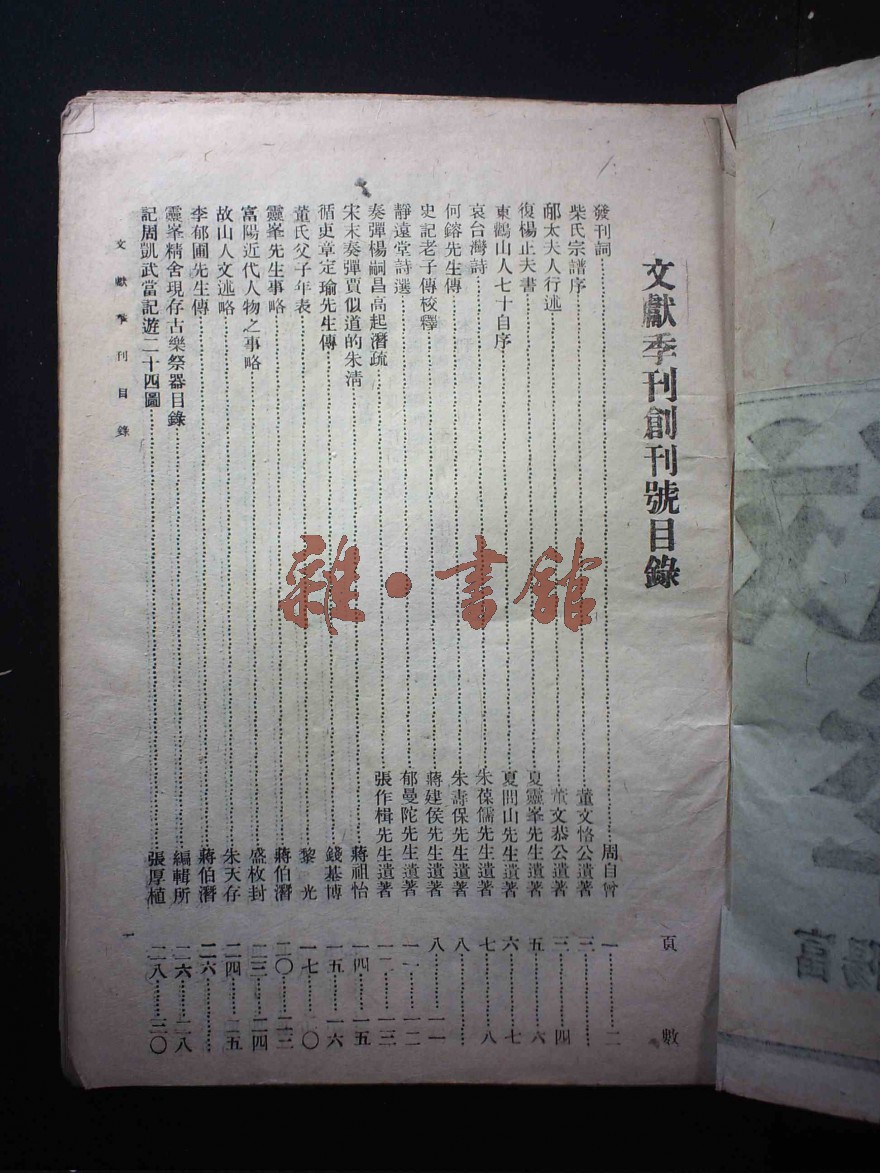 文獻季刊創刊號目錄
頁數
發刊詞……周自曾 一……二
柴氏宗譜序……董文恪公遺著 三……
郁太夫人行述……董文恭公遺著 三……四
復楊止夫書……夏靈峯先生遺著 五……六
東鶴山人七十自序……夏問山先生遺著 六……七
哀台灣詩……朱葆儒先生遺著 七……八
何鎔先生傳……朱壽保先生遺著 八……
史記老子傳校釋……蔣建侯先生遺著 八……一一
靜遠堂詩選……郁曼陀先生遺著 一一……一二
奏彈楊嗣昌高起潛疏……張作楫先生遺著 一二……一三
宋末奏彈賈似道的朱淸……蔣祖怡 一四……一五
循吏章定瑜先生傳……錢基博 一五……一六
董氏父子年表……黎光 一七……二〇
靈峯先生事略……蔣伯潛 二〇……二三
富陽近代人物之事略……盛枚封 二三……二四
故山人文述略……朱天存 二四……二五
李郁圃先生傳……蔣伯潛 二六……
靈峯精舍現存古樂祭器目錄……編輯所 二六……二八
記周凱武當記遊二十四圖……張厚植 二八……三〇
文獻季刊目錄
一
雜·書館
富陽